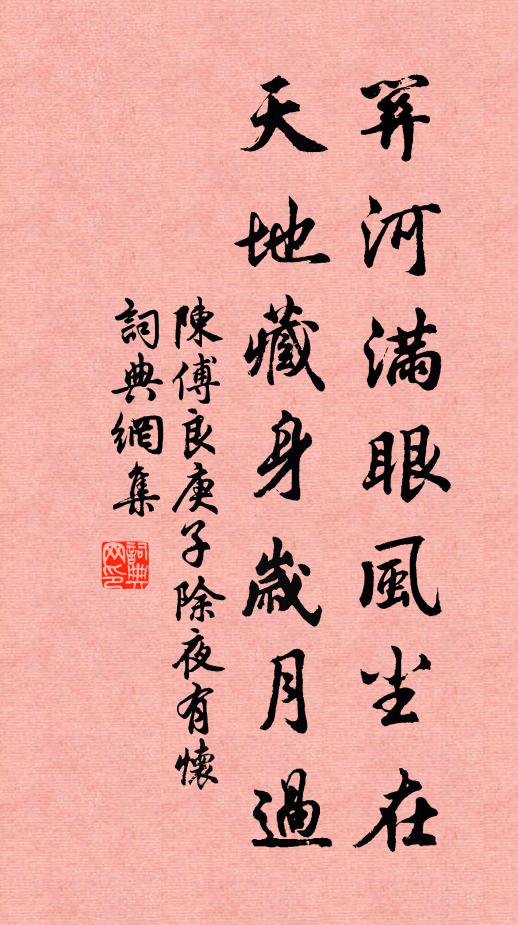 关河滿眼風尘在
天地藏身歲月過
陳傅良庚子除夜有懷
詞典網集
詞典
网印